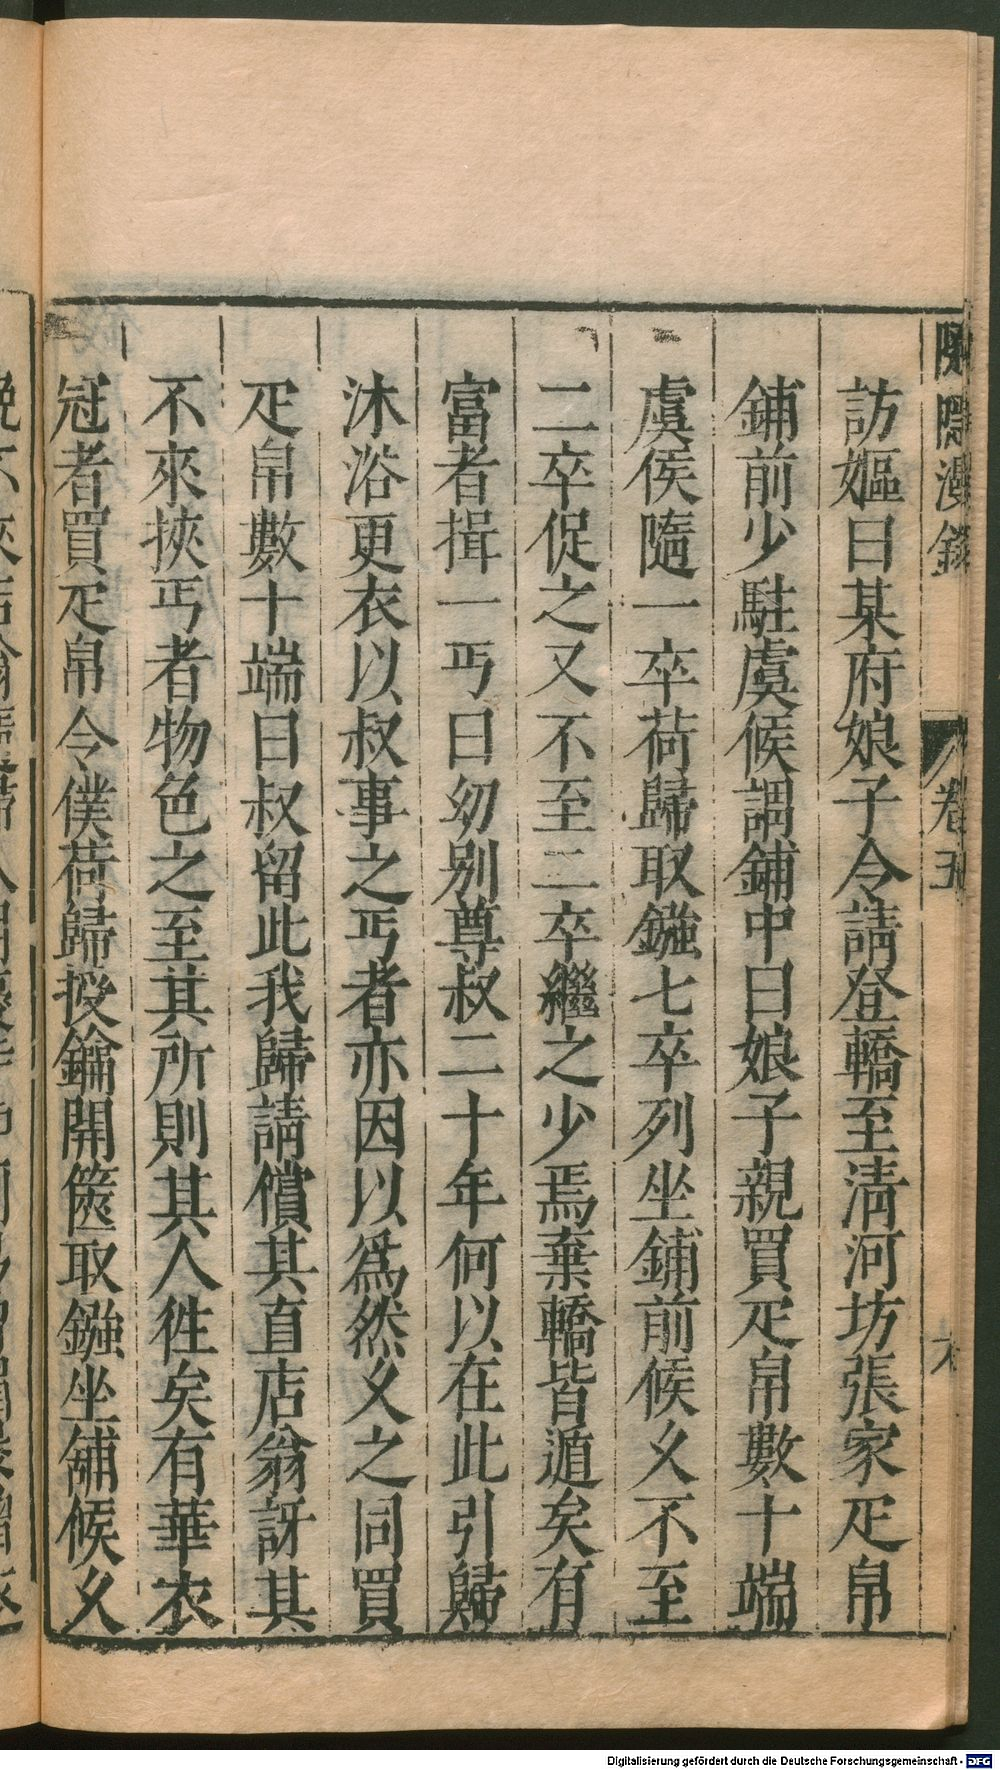 隨隱漫錄
卷五
訪嫗曰某府娘子令請登轎至淸河坊張家疋帛
鋪前少駐虞候謂鋪中曰娘子親買疋帛數十端
虞侯隨一卒荷歸取鏹七卒列坐鋪前候久不至
二卒促之又不至二卒繼之少焉棄轎皆遁矣有
富者揖一丐曰幼別尊叔二十年何以在此引歸
沐浴更衣以叔事之丐者亦因以爲然久之同買
疋帛數十端曰叔留此我歸請償其直店翁訝其
不來挾丐者物色之至其所則其人徃矣有華衣
冠者買疋帛令僕荷歸授鑰開篋取鏹坐舖候久
Digitalisierung gefördert durch die Deutsche Forschungsgemeinschaft - DFG